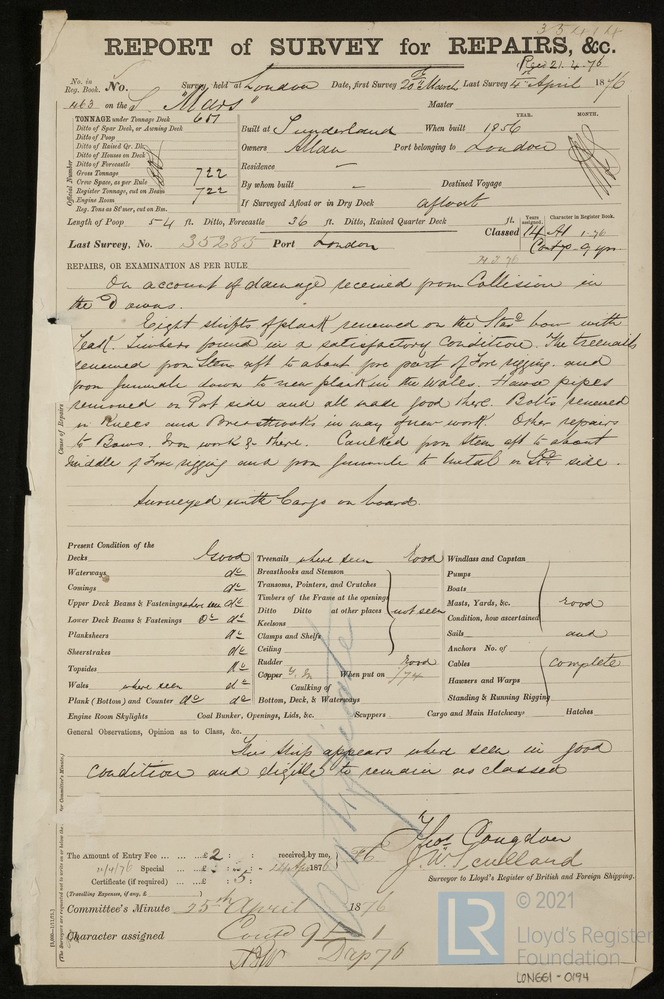 35414
REPORT of SURVEY for REPAIRS, &c.
Rec'd 21.4.76
No. in Reg. Book. No. Survey held at London Date, first Survey 20th March Last Survey 4th April 1876
463 on the S. "Mars" Master
TONNAGE under Tonnage Deck 657
Ditto of Spar Deck, or Awning Deck
Ditto of Poop
Ditto of Raised Qr. Dk.
Ditto of House on Deck
Ditto of Forecastle
Gross Tonnage 722
Crew Space, as per Rule
Register Tonnage, cut on Beam 722
Engine Room
Reg. Tons as St'mer, cut on Bm.
Official Number
YEAR. MONTH.
Built at Sunderland When built 1856
Owners Allan Port belonging to London
Residence —
By whom built — Destined Voyage
If Surveyed Afloat or in Dry Dock afloat
Length of Poop 54 ft. Ditto, Forecastle 36 ft. Ditto, Raised Quarter Deck ft.
Years assigned. Character in Register Book.
Classed 14 A1 1.76
Cont'd 9 yrs
Last Survey, No. 35285 Port London
REPAIRS, OR EXAMINATION AS PER RULE
On account of damage received from Collision in
the Downs.
Eight shifts of plank renewed on the Starbd bow with
Teak. Timbers found in a satisfactory condition. The treenails
renewed from Stem aft to about fore part of Fore rigging and
from gunwale down to new plank in the Wales. Hawse pipes
removed on Port side and all made good there. Bolts renewed
in Knees and Breasthooks in way of new work. Other repairs
to Bows, Iron work &c there. Caulked from Stem aft to about
middle of Fore rigging and from gunwale to metal on Std side.
Surveyed with Cargo on board.
Cause of Repairs
Present Condition of the
Decks Good
Waterways do
Comings do
Upper Deck Beams & Fastenings where seen do
Lower Deck Beams & Fastenings Do do
Planksheers do
Sheerstrakes do
Topsides do
Wales where seen do
Plank (Bottom) and Counter do do
Engine Room Skylights Coal Bunker, Openings, Lids, &c. Scuppers Cargo and Main Hatchways Hatches
Treenails where seen Good
Breasthooks and Stemson
Transoms, Pointers, and Crutches
Timbers of the Frame at the openings
Ditto Ditto at other places not seen
Keelsons
Clamps and Shelfs
Ceiling
Rudder Good
Copper Y. M. When put on 1/74
Caulking of
Bottom, Deck, & Waterways
Windlass and Capstan
Pumps
Boats
Masts, Yards, &c. Good
Condition, how ascertained
Sails and
Anchors No. of
Cables complete
Hawsers and Warps
Standing & Running Rigging
General Observations, Opinion as to Class, &c.
This Ship appears where seen in good
condition and eligible to remain as classed
Certificate
Thos Congdon
J. W. Scullard
Surveyor to Lloyd's Register of British and Foreign Shipping.
The Amount of Entry Fee ... £ 2 : : received by me,
11/4/76 Special ... £
Certificate (if required) ... £ : 5 :
(Travelling Expenses, if any, £ )
Committee's Minute 25th April 1876
Character assigned Cont'd 9 1
© 2021
LR
Lloyd's Register
Foundation
LON661-0194